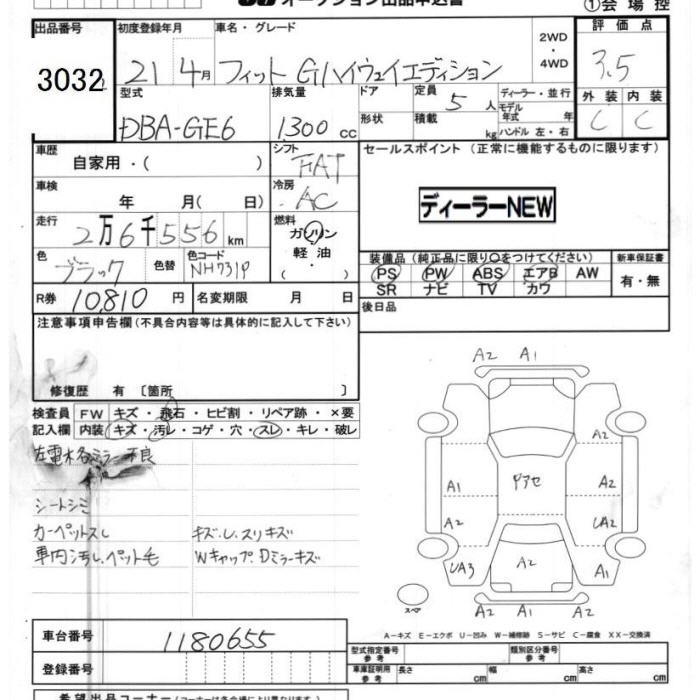 オークション出品申込書
①会 場 控
出品番号 初度登録年月 車名・グレード 評 価 点
3032 21 4月 フィット Gハイウェイエディション 2WD・4WD 3.5
型式 排気量 ドア 定員 5 人 ディーラー・並行 外 装 内 装
DBA-GE6 1300 cc 形状 積載 kg モデル年式 年 ハンドル 左・右 C C
車歴 自家用・( ) シフト FAT セールスポイント (正常に機能するものに限ります)
車検 年 月( 日) 冷房 AC ディーラーNEW
走行 2万6千556 km 燃料 ガソリン 軽油
色 ブラック 色替 色コード NH731P 装備品(純正品に限り○をつけてください) 新車保証書
PS PW ABS エアB AW 有・無
SR ナビ TV カワ
R券 10,810 円 名変期限 月 日 後日品
注意事項申告欄(不具合内容等は具体的に記入して下さい)
修復歴 有〔箇所 〕
検査員 FW キズ・飛石・ヒビ割・リペア跡・×要
記入欄 内装 キズ・汚レ・コゲ・穴・スレ・キレ・破レ
不良
シートシミ
カーペットスレ キズ.U.スリキズ
車内汚し.ペット毛 Wキャップ.Dミラーキズ
A2 A1
A2
A1 Pアセ A2
A2 UA2
UA3 A2 A1
スペア A2 A2 A1
A-キズ E-エクボ U-凹み W-補修跡 S-サビ C-腐食 XX-交換済
車台番号 1180655
型式指定番号 参考 類別区分番号 参考
登録番号 車庫証明用 参考 長さ cm 幅 cm 高さ cm
希望出品コーナー